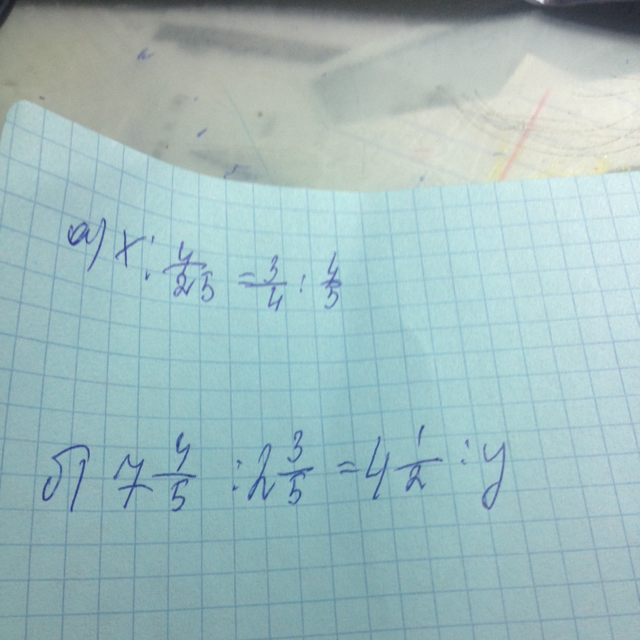 а) x : 4/25 = 3/4 : 4/5
б) 7 4/5 : 2 3/5 = 4 1/2 : y